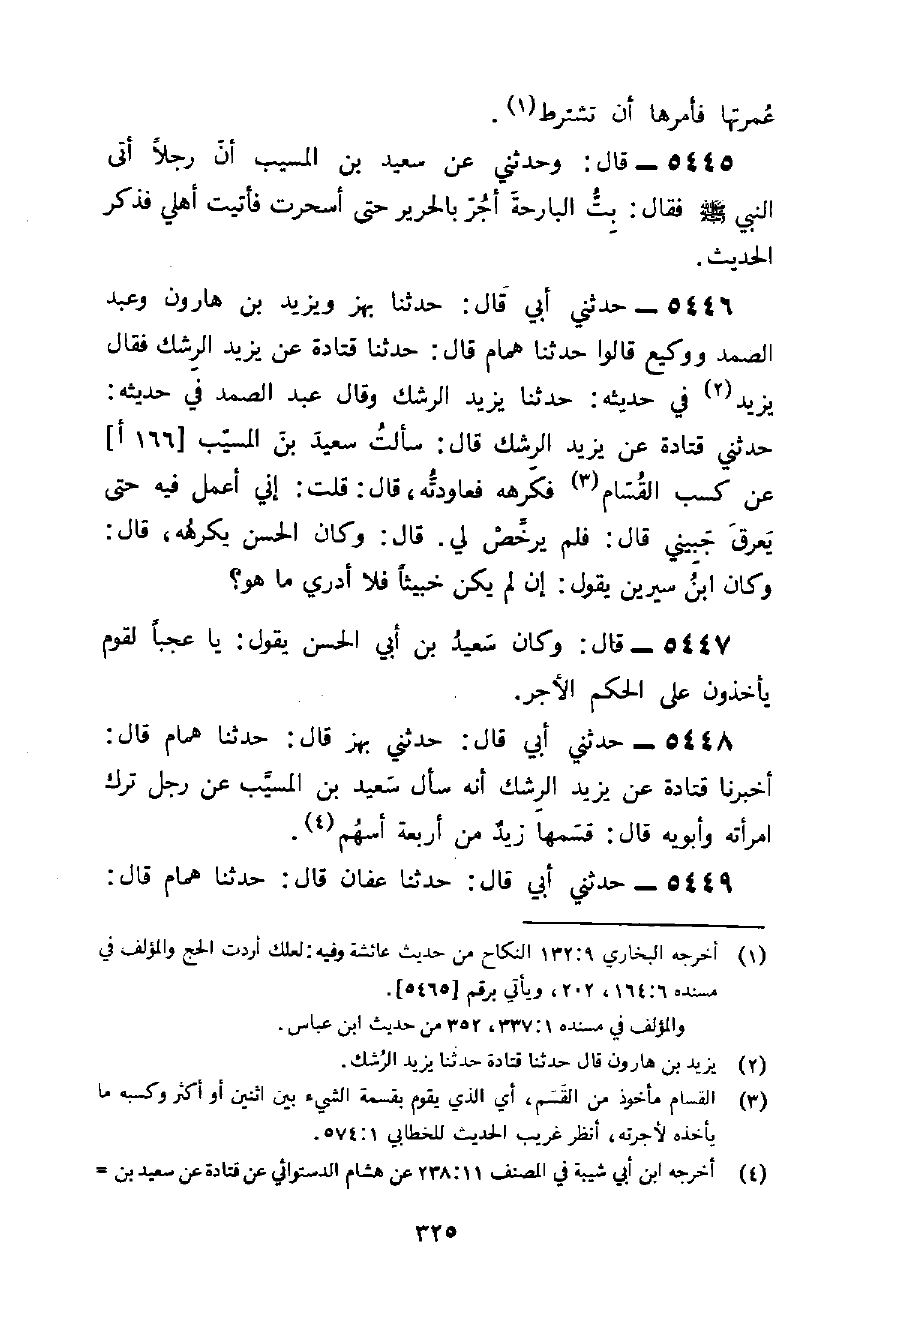 عُمرتها فأمرها أن تشترط(١).
٥٤٤٥ ــ قال: وحدثني عن سعيد بن المسيب أنّ رجلاً أتى
النبي ﷺ فقال: بِتُّ البارحةَ أجُرّ بالحرير حتى أسحرت فأتيت أهلي فذكر
الحديث.
٥٤٤٦ ــ حدثني أبي قال: حدثنا بهز ويزيد بن هارون وعبد
الصمد ووكيع قالوا حدثنا همام قال: حدثنا قتادة عن يزيد الرِشك فقال
يزيد(٢) في حديثه: حدثنا يزيد الرشك وقال عبد الصمد في حديثه:
حدثني قتادة عن يزيد الرِشك قال: سألتُ سعيدَ بنَ المسيّب [١٦٦ أ]
عن كسب القُسّام(٣) فكرهه فعاودتُّه، قال: قلت: إني أعمل فيه حتى
يَعرقَ جَبِيني قال: فلم يرخِّصْ لي. قال: وكان الحسن يكرهُه، قال:
وكان ابنُ سيرين يقول: إن لم يكن خبيثاً فلا أدري ما هو؟
٥٤٤٧ ــ قال: وكان سَعيدُ بن أبي الحسن يقول: يا عجباً لقوم
يأخذون على الحكم الأجر.
٥٤٤٨ ــ حدثني أبي قال: حدثني بهز قال: حدثنا همام قال:
أخبرنا قتادة عن يزيد الرِشك أنه سأل سَعيد بن المسيَّب عن رجل ترك
امرأته وأبويه قال: قسَمها زيدٌ من أربعة أسهُم(٤).
٥٤٤٩ ــ حدثني أبي قال: حدثنا عفان قال: حدثنا همام قال:
(١) أخرجه البخاري ١٣٢:٩ النكاح من حديث عائشة وفيه: لعلك أردت الحج والمؤلف في
مسنده ١٦٤:٦، ٢٠٢، ويأتي برقم [٥٤٦٥].
والمؤلف في مسنده ٣٣٧:١، ٣٥٢ من حديث ابن عباس.
(٢) يزيد بن هارون قال حدثنا قتادة حدثنا يزيد الرُشك.
(٣) القسام مأخوذ من القَسَم، أي الذي يقوم بقسمة الشيء بين اثنين أو أكثر وكسبه ما
يأخذه لأجرته، أنظر غريب الحديث للخطابي ٥٧٤:١.
(٤) أخرجه ابن أبي شيبة في المصنف ٢٣٨:١١ عن هشام الدستوائي عن قتادة عن سعيد بن =
٣٢٥